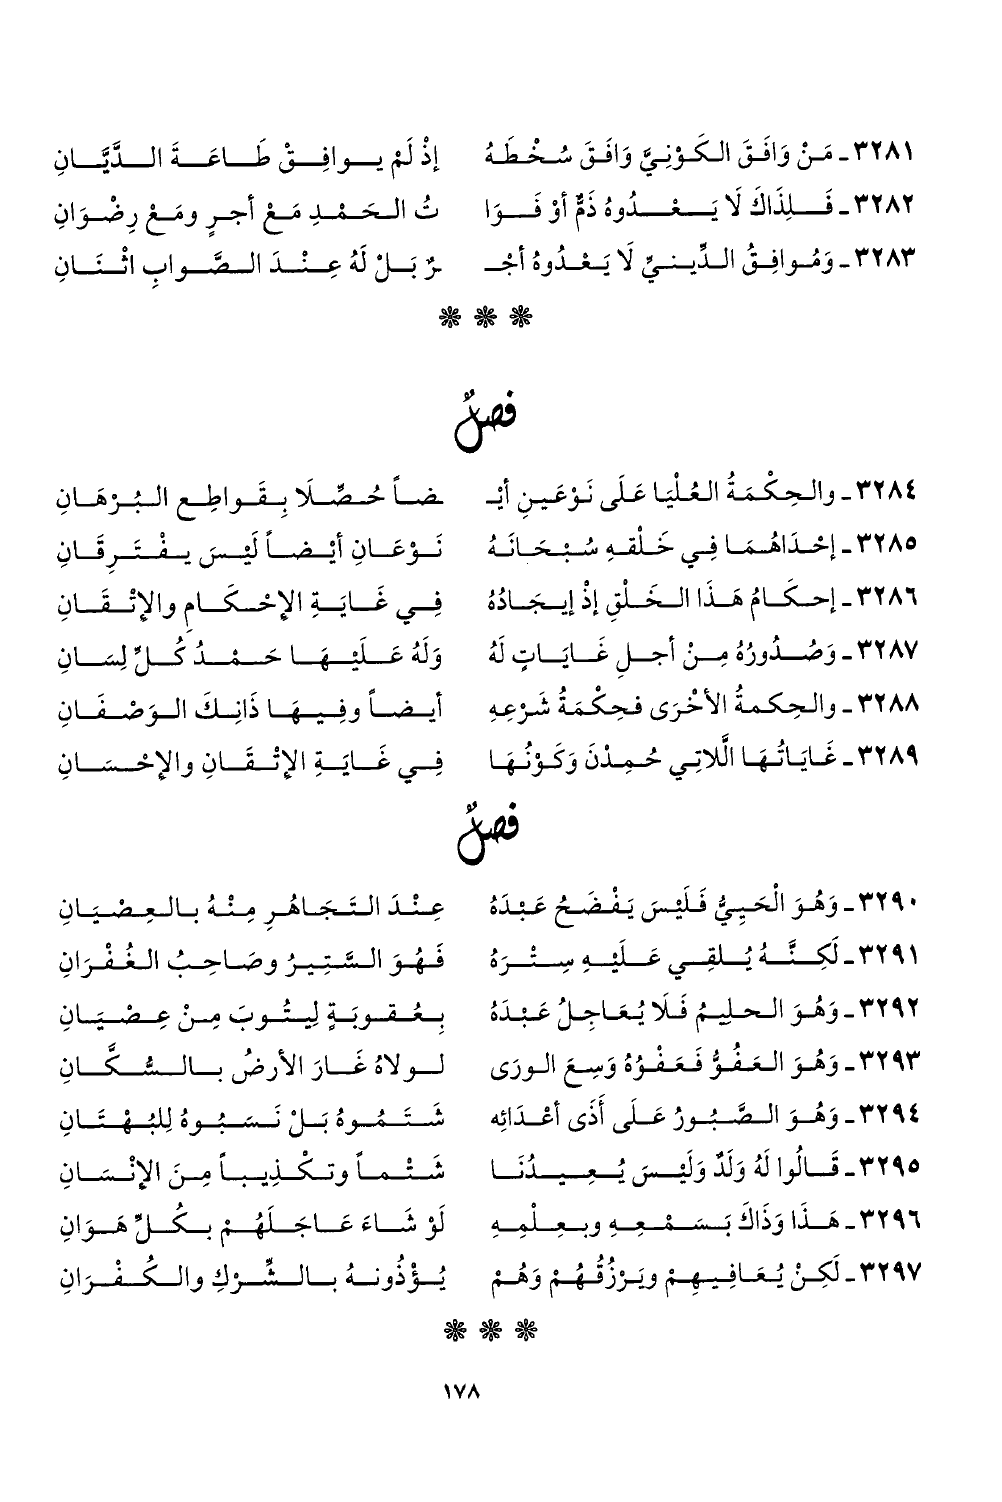 ٣٢٨١ـ مَنْ وَافَقَ الكَوْنِيَّ وَافَقَ سُخْطَهُ إذْ لَمْ يوافِقْ طَاعَةَ الدَّيَّانِ
٣٢٨٢ـ فَلِذَاكَ لَا يَعْدُوهُ ذَمٌّ أوْ فَوَا تُ الحَمْدِ مَعْ أجرٍ ومَعْ رِضْوَانِ
٣٢٨٣ـ وَمُوافِقُ الدِّينيِّ لَا يَعْدُوهُ أجْـ ـرٌ بَلْ لَهُ عِنْدَ الصَّوابِ اثْنَانِ
فصلٌ
٣٢٨٤ـ والحِكْمَةُ العُلْيَا عَلَى نَوْعَينِ أيْـ ـضاً حُصِّلَا بِقَواطِعِ البُرْهَانِ
٣٢٨٥ـ إحْدَاهُمَا فِي خَلْقهِ سُبْحَانَهُ نَوْعَانِ أيْضاً لَيْسَ يفْتَرِقَانِ
٣٢٨٦ـ إحكَامُ هَذَا الخَلْقِ إذْ إيجَادُهُ فِي غَايَةِ الإحْكَامِ والإتْقَانِ
٣٢٨٧ـ وَصُدُورُهُ مِنْ أجلِ غَايَاتٍ لَهُ وَلَهُ عَلَيْهَا حَمْدُ كُلِّ لِسَانِ
٣٢٨٨ـ والحِكمةُ الأخْرَى فحِكْمَةُ شَرْعِهِ أيضاً وفِيهَا ذَانِكَ الوَصْفَانِ
٣٢٨٩ـ غَايَاتُهَا الَّلاتِي حُمِدْنَ وَكَوْنُهَا فِي غَايَةِ الإتْقَانِ والإحْسَانِ
فصلٌ
٣٢٩٠ـ وَهُوَ الْحَيِيُّ فَلَيْسَ يَفْضَحُ عَبْدَهُ عِنْدَ التَّجَاهُرِ مِنْهُ بالعِصْيَانِ
٣٢٩١ـ لَكِنَّهُ يُلقِي عَلَيْهِ سِتْرَهُ فَهُوَ السَّتِيرُ وصَاحِبُ الغُفْرَانِ
٣٢٩٢ـ وَهُوَ الحليمُ فَلَا يُعَاجِلُ عَبْدَهُ بعُقوبَةٍ لِيتُوبَ مِنْ عِصْيَانِ
٣٢٩٣ـ وَهُوَ العَفُوُّ فَعَفْوُهُ وَسِعَ الورَى لولاهُ غَارَ الأرضُ بالسُّكَّانِ
٣٢٩٤ـ وَهُوَ الصَّبُورُ عَلَى أَذَى أعْدَائِه شَتَمُوهُ بَلْ نَسَبُوهُ لِلبُهْتَانِ
٣٢٩٥ـ قَالُوا لَهُ وَلَدٌ وَلَيْسَ يُعِيدُنَا شَتْماً وتكْذِيباً مِنَ الإنْسَانِ
٣٢٩٦ـ هَذَا وَذَاكَ بَسَمْعِهِ وبعِلْمِهِ لَوْ شَاءَ عَاجَلَهُمْ بكُلِّ هَوَانِ
٣٢٩٧ـ لَكِنْ يُعَافِيهِمْ ويَرْزُقُهُمْ وَهُمْ يُؤْذُونهُ بالشِّرْكِ والكُفْرَانِ
١٧٨